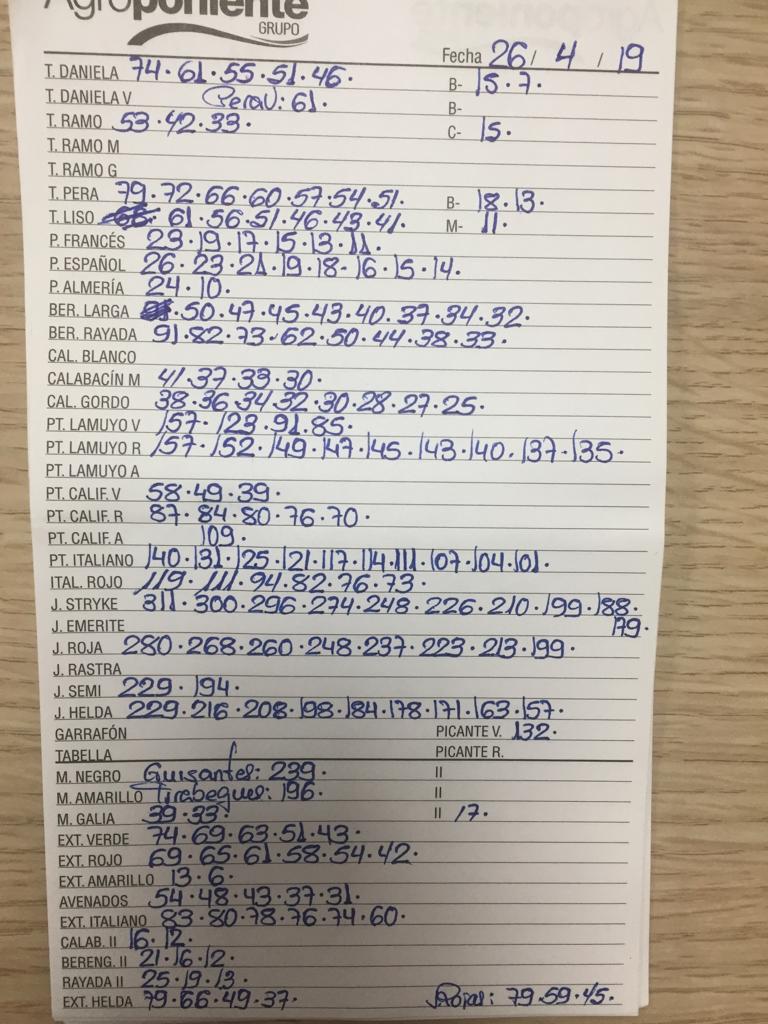 Agroponiente
GRUPO
Fecha 26/ 4 / 19
T. DANIELA 74·61·55·51·46· B- 15·7·
T. DANIELA V PeraV: 61· B-
T. RAMO 53·42·33· C- 15·
T. RAMO M
T. RAMO G
T. PERA 79·72·66·60·57·54·51· B- 18·13·
T. LISO 61·56·51·46·43·41· M- 11·
P. FRANCÉS 23·19·17·15·13·11·
P. ESPAÑOL 26·23·21·19·18-16·15·14·
P. ALMERÍA 24·10·
BER. LARGA ·50·47·45·43·40·37·34·32·
BER. RAYADA 91·82·73·62·50·44·38·33·
CAL. BLANCO
CALABACÍN M 41·37·33·30·
CAL. GORDO 38·36·34·32·30·28·27·25·
PT. LAMUYO V 157·123·91·85·
PT. LAMUYO R 157·152·149·147·145·143·140·137·135·
PT. LAMUYO A
PT. CALIF. V 58·49·39·
PT. CALIF. R 87·84·80·76·70·
PT. CALIF. A 109·
PT. ITALIANO 140·131·125·121·117·114·111·107·104·101·
ITAL. ROJO 119·111·94·82·76·73·
J. STRYKE 311·300·296·274·248·226·210·199·188·
J. EMERITE 179·
J. ROJA 280·268·260·248·237·223·213·199·
J. RASTRA
J. SEMI 229·194·
J. HELDA 229·216·208·198·184·178·171·163·157·
GARRAFÓN PICANTE V. 132·
TABELLA PICANTE R.
M. NEGRO Guisantes: 239· II
M. AMARILLO Tirabeques: 196· II
M. GALIA 39·33· II 17·
EXT. VERDE 74·69·63·51·43·
EXT. ROJO 69·65·61·58·54·42·
EXT. AMARILLO 13·6·
AVENADOS 54·48·43·37·31·
EXT. ITALIANO 83·80·78·76·74·60·
CALAB. II 16·12·
BERENG. II 21·16·12·
RAYADA II 25·19·13·
EXT. HELDA 79·66·49·37· Rojas: 79·59·45·